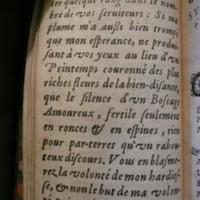 ter quelque rang dans le nom-
bre de vos seruiteurs : Si ma
plume m'a aussi bien trompé
que mon esperance, ne produi-
sant à vos yeux au lieu d'un
Printemps couronné des plus
riches fleurs de la bien-disance,
que le silence d'un Boscage
Amoureux, fertile seulement
en ronces & en espines, rien
pour par-terres qu'un rabou-
teux discours. Vous en blasme-
rez la volonté de mon hardies-
se, & non le but de ma volon-